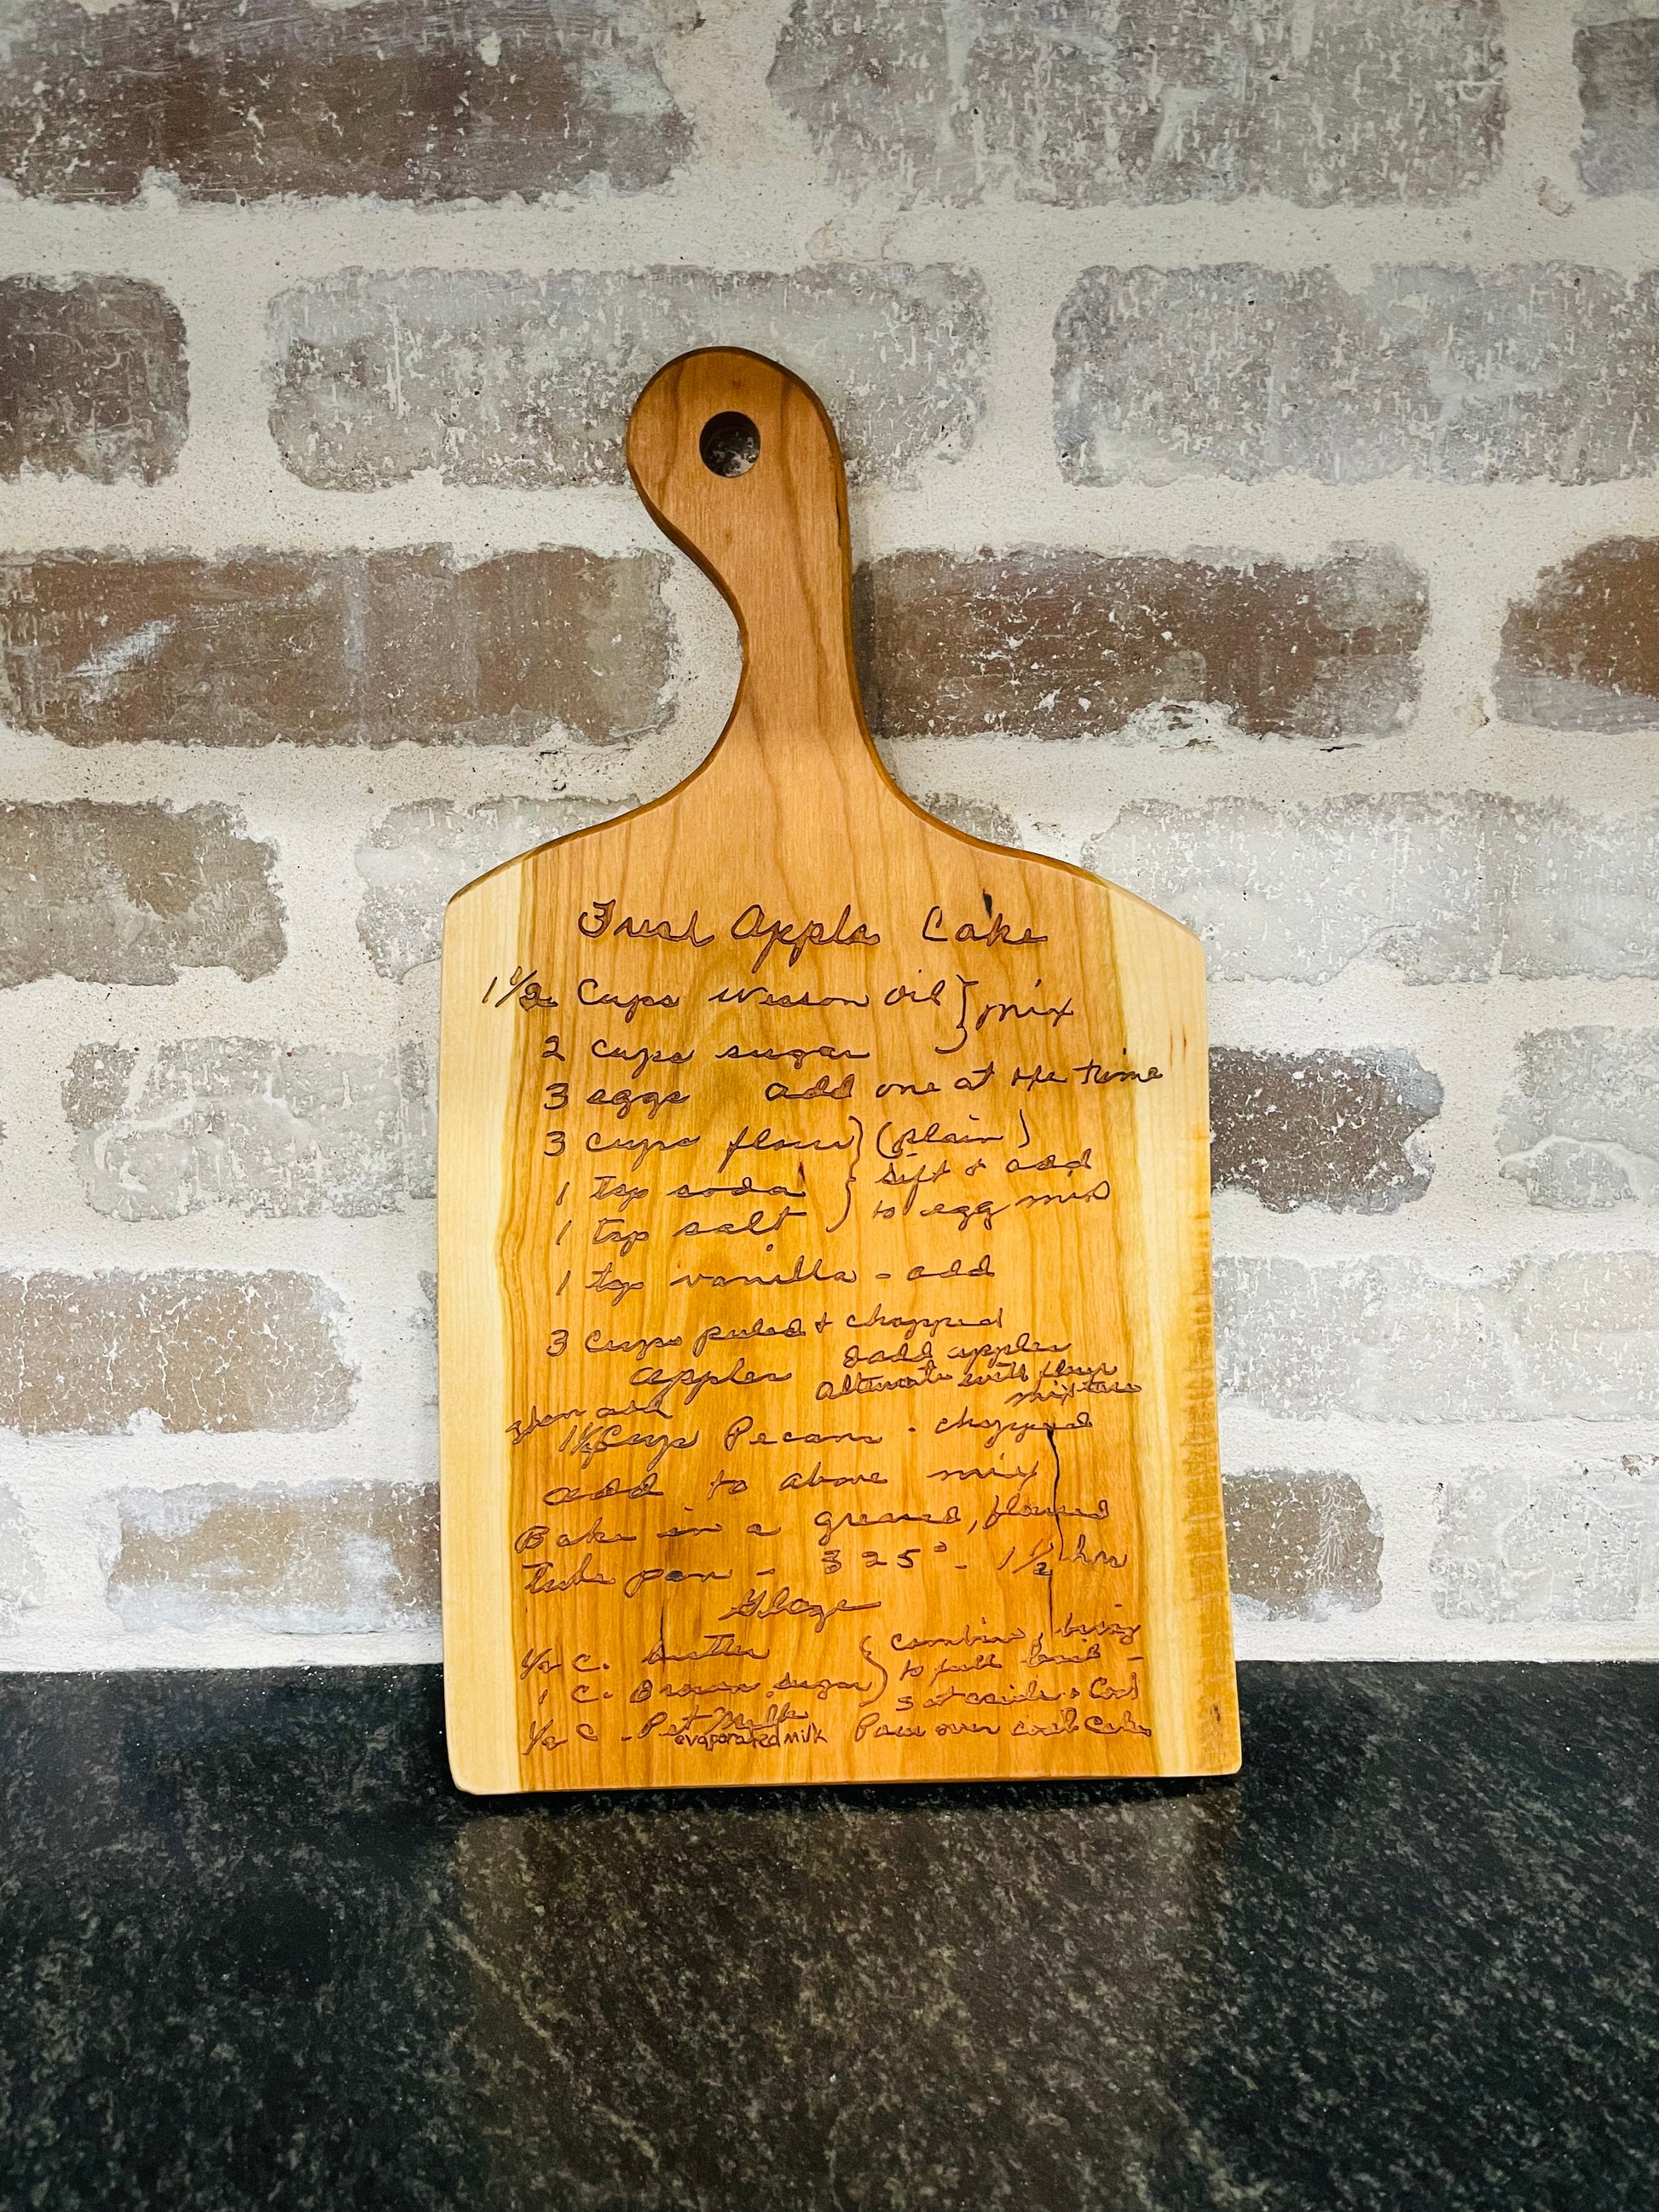 Fresh Apple Cake
1 1/2 Cups Wesson Oil } mix
2 cups sugar
3 eggs add one at the time
3 cups flour } (plain)
1 Tsp soda sift & add
1 Tsp salt to egg mix
1 tsp vanilla - add
3 Cups peeled & chopped
apples add apples
alternate with flour
mixture
then add
Cup Pecans - chopped
add to above mix
Bake in a greased, floured
tube pan - 325° - 1 1/2 hrs
Glaze
1/2 C. butter } Combine, bring
1 C. Brown sugar to full boil -
Set aside & Cool
1/2 C - Pet Milk Pour over cool Cake
evaporated milk